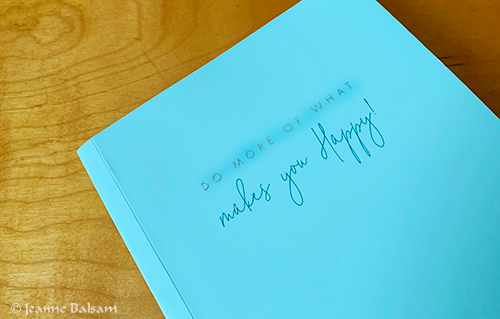 DO MORE OF WHAT
makes you Happy!
© Jeanne Balsam